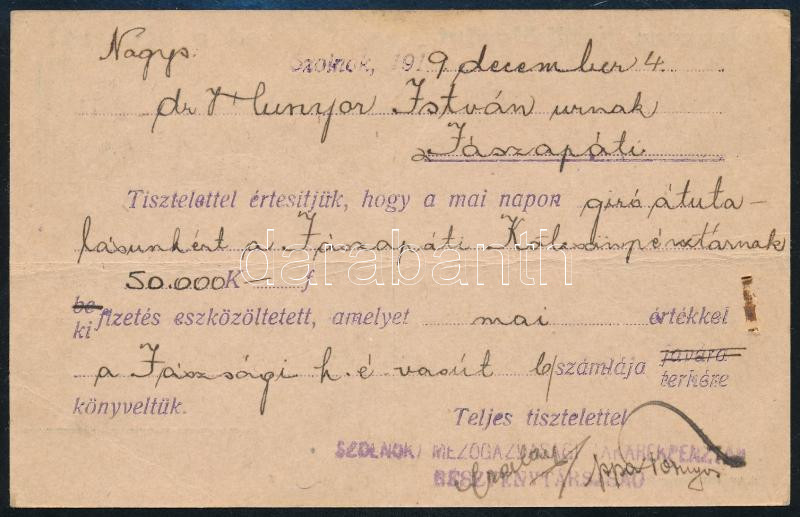 Nagys.
Szolnok, 1919 december 4.
dr Hunyor István urnak
Jászapáti
Tisztelettel értesitjük, hogy a mai napon giró átuta-
lásunkért a Jászapáti Kölcsönpénztárnak
50.000 K — f
be
ki fizetés eszközöltetett, amelyet mai értékkel
a Jászsági h. é. vasút b/ számlája javára
terhére
könyveltük.
Teljes tisztelettel
SZOLNOKI MEZŐGAZDASÁGI TAKARÉKPÉNZTÁR
RÉSZVÉNYTÁRSASÁG
ppa
darabanth